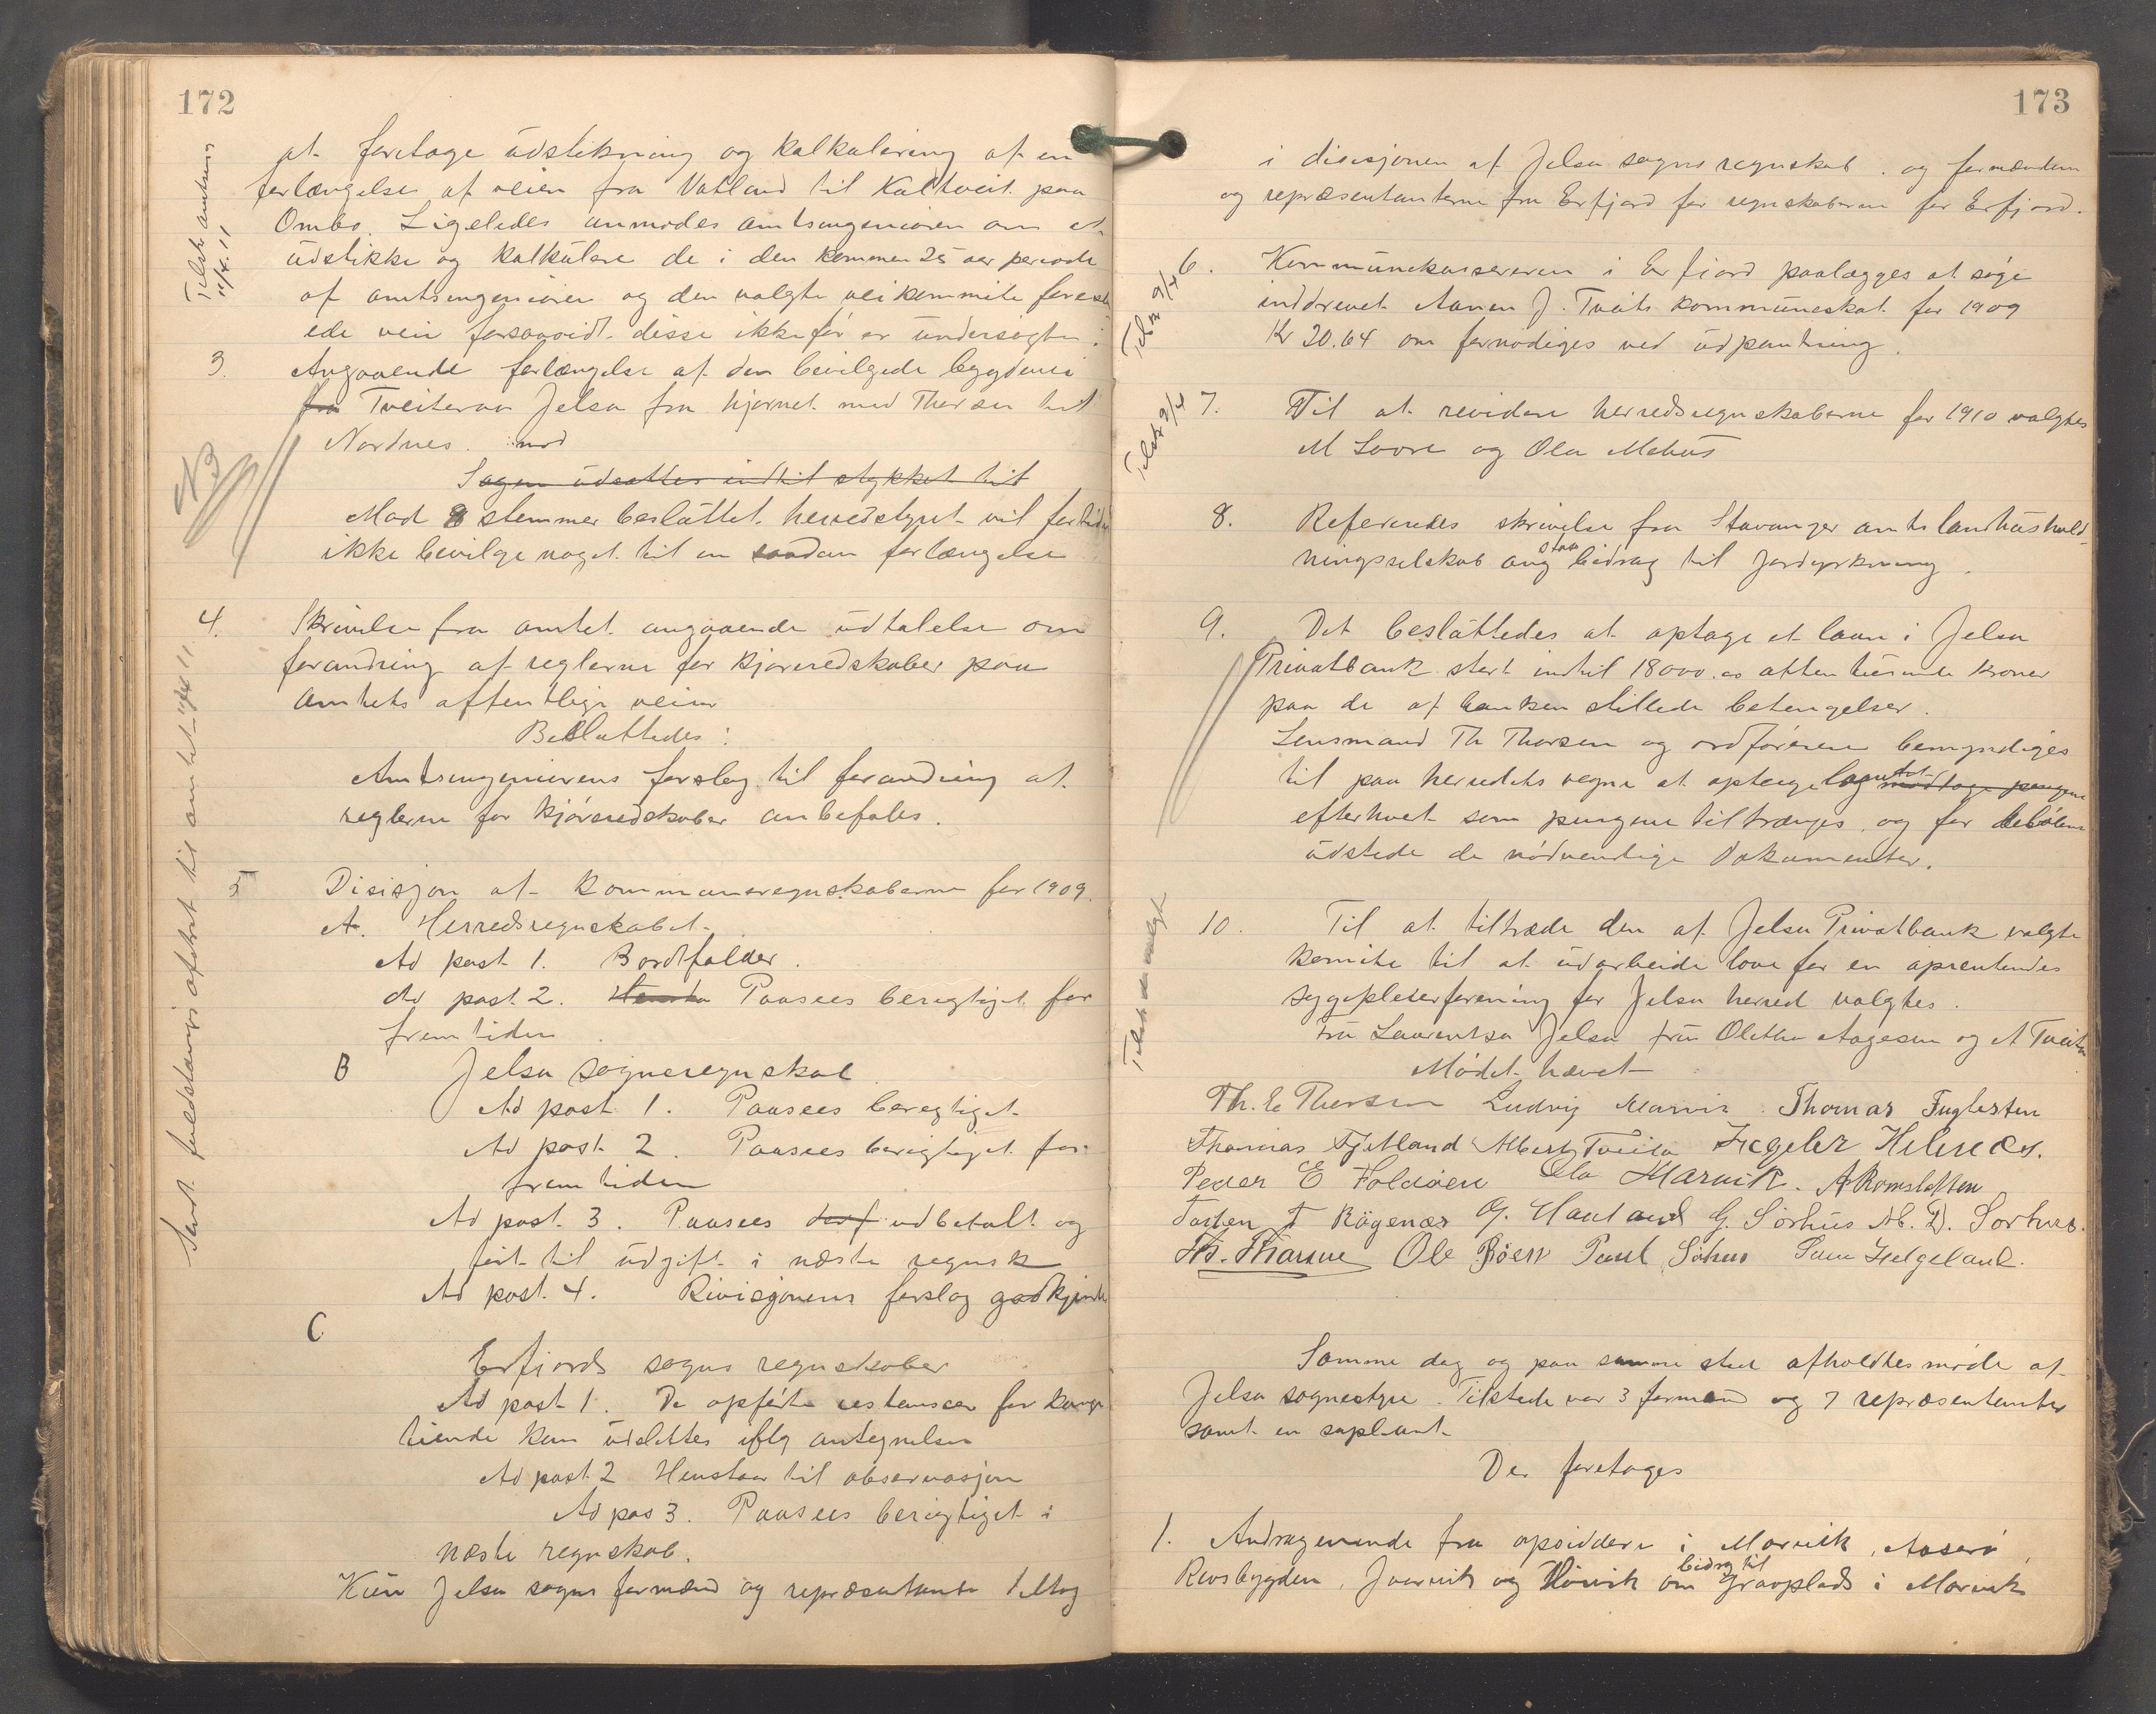 172
at foretage udstikning og kalkulering af en
forlængelse af veien fra Vatland til Kaltveit paa
Ombo. Ligeledes anmodes amtsingeniøren om at
udstikke og kalkulere de i den kommen 25 aar periode
af amtsingeniøren og den valgte veikommite foresl
ede vein forsaavidt disse ikke før er undersøgte.
Telstr amtsing 11/4. 11
3. Angaaende forlængelse af den bevilgede bygdevei
fra Tveiteraa Jelsa fra hjørnet med Thorsen til
Nordnes. mod
NB
Sagen udsættes indtil stykket til
Mod 8 stemmer besluttet. herredstyret vil for tiden
ikke bevilge noget til en saadan forlængelse
4. Skrivelse fra amtet angaaende udtalelse om
forandring af reglerne for kjøreredskaber paa
amtets offentlige veier
Besluttedes:
Amtsingeniørens forslag til forandring at
reglerne for kjøreredskaber anbefales.
5 Disisjon af kommuneregnskaberne for 1909.
A. Herredsregnskabet.
Ad post 1. Bortfalder.
Ad post 2. Paasees berigtiget for
fremtiden
B Jelsa sogneregnskab
Ad post 1. Paasees berigtiget
Ad post 2. Paasees berigtiget for
fremtiden
Ad post 3. Paasees udbetalt og
ført til udgift i næste regnsk
Ad post 4. Rivisjonens forslag godkjendes
C
Erfjords sogns regnskaber
Ad post 1. De opførte restanser for konge
tiende kan udslettes iflg antegnelsen
Ad post 2 Henstaar til observasjon
Ad pos 3. Paasees berigtiget i
næste regnskab.
Kun Jelsa sogns formænd og repræsentanter deltog
173
i disisjonen af Jelsa sogns regnskab. og formændene
og repræsentanterne fra Erfjord for regnskaberne for Erfjord.
6. Kommunekassereren i Erfjord paalægges at søge
inddrevet Aanen J. Tveits kommuneskat for 1909
Kr 20.64 om fornødiges ved udpantning.
Telstr 9/4
7. Til at revidere herredsregnskaberne for 1910 valgtes
M Lovre og Ola Mehus
8. Refereredes skrivelse fra Stavanger amts landhushold-
ningselskab ang stats bidrag til Jordyrkning.
9. Det besluttedes at optage et laan i Jelsa
Privatbank stort indtil 18000.00 atten tusinde kroner
paa de af banken stillede betingelser.
Lensmand Th Thorsen og ordføreren bemyndiges
til paa herredets vegne at optage laanet og modtage pengene
efterhvet som pengene tiltrænges, og for beløbene
udstede de nødvendige Dokumenter.
10. Til at tiltræde den af Jelsa Privatbank valgte
komite til at udarbeide love for en oprentendes
sygepleierforening for Jelsa herred valgtes.
fru Laurentsa Jelsa fru Olethe Aagesen og A Tveita
Mødet hævet
Th. E Thorsen Ludvig Marvik Thomas Fuglesten
Thomas Fjetland Albert Tveita
Peder E Foldøen Ola Marvik. A Romsletten
G. Hauland G. Sørhus
Ole Bøen Paul Sørhus
Samme dag og paa samme sted afholdtes møde af
Jelsa sognestyre. Tilstede var 3 formænd og 7 repræsentanter
samt en suplant
Der foretages
1. Andragenande fra opsiddere i Marvik, Aaserø,
Revsbygden, Joarvik og Høivik om bidrag til gravplads i Marvik